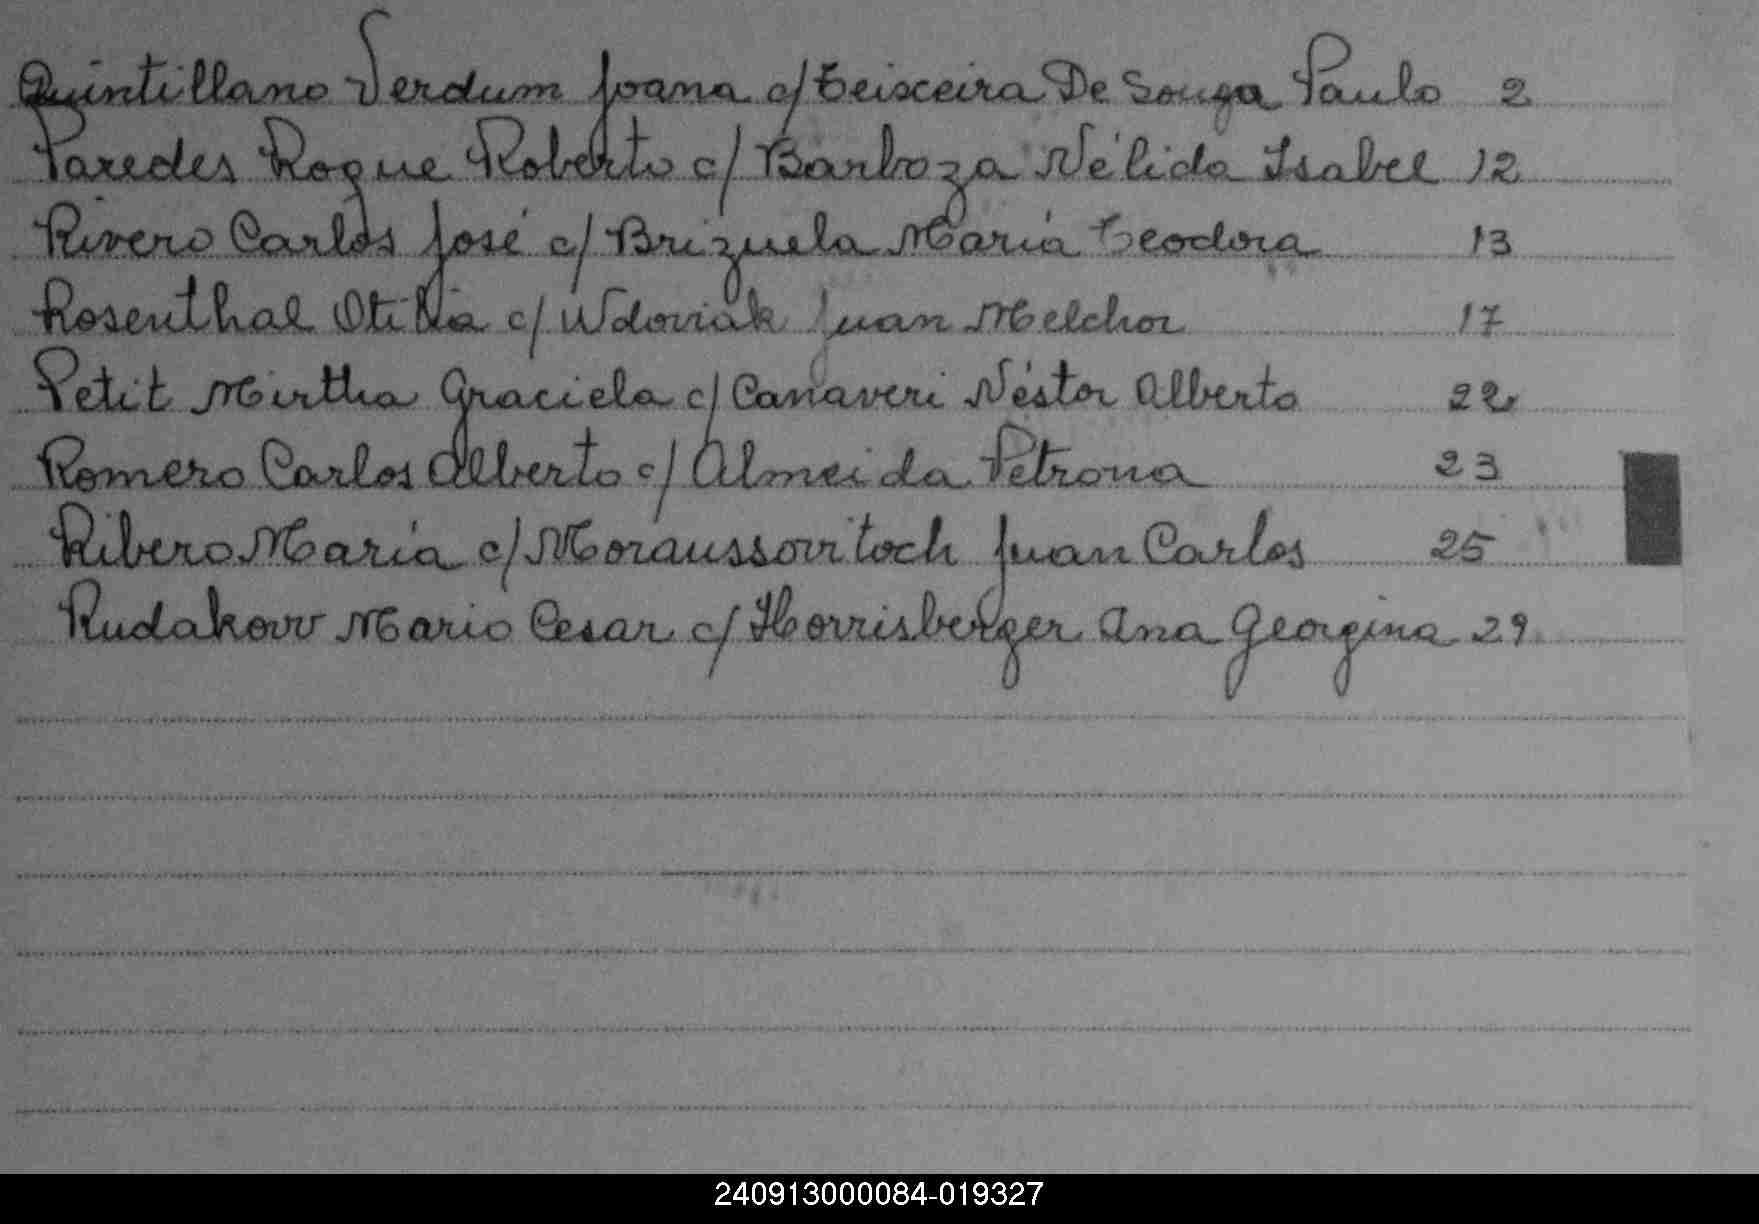 Quintillano Verdum Joana c/ Teixeira De Souza Paulo 2
Paredes Roque Roberto c/ Barboza Nélida Isabel 12
Rivero Carlos José c/ Brizuela María Teodora 13
Rosenthal Otilia c/ Wdoviak Juan Melchor 17
Petit Mirtha Graciela c/ Canaveri Néstor Alberto 22
Romero Carlos Alberto c/ Almeida Petrona 23
Ribero María c/ Moraussovitoch Juan Carlos 25
Rudakow Mario Cesar c/ Horrisberger Ana Georgina 29
240913000084-019327